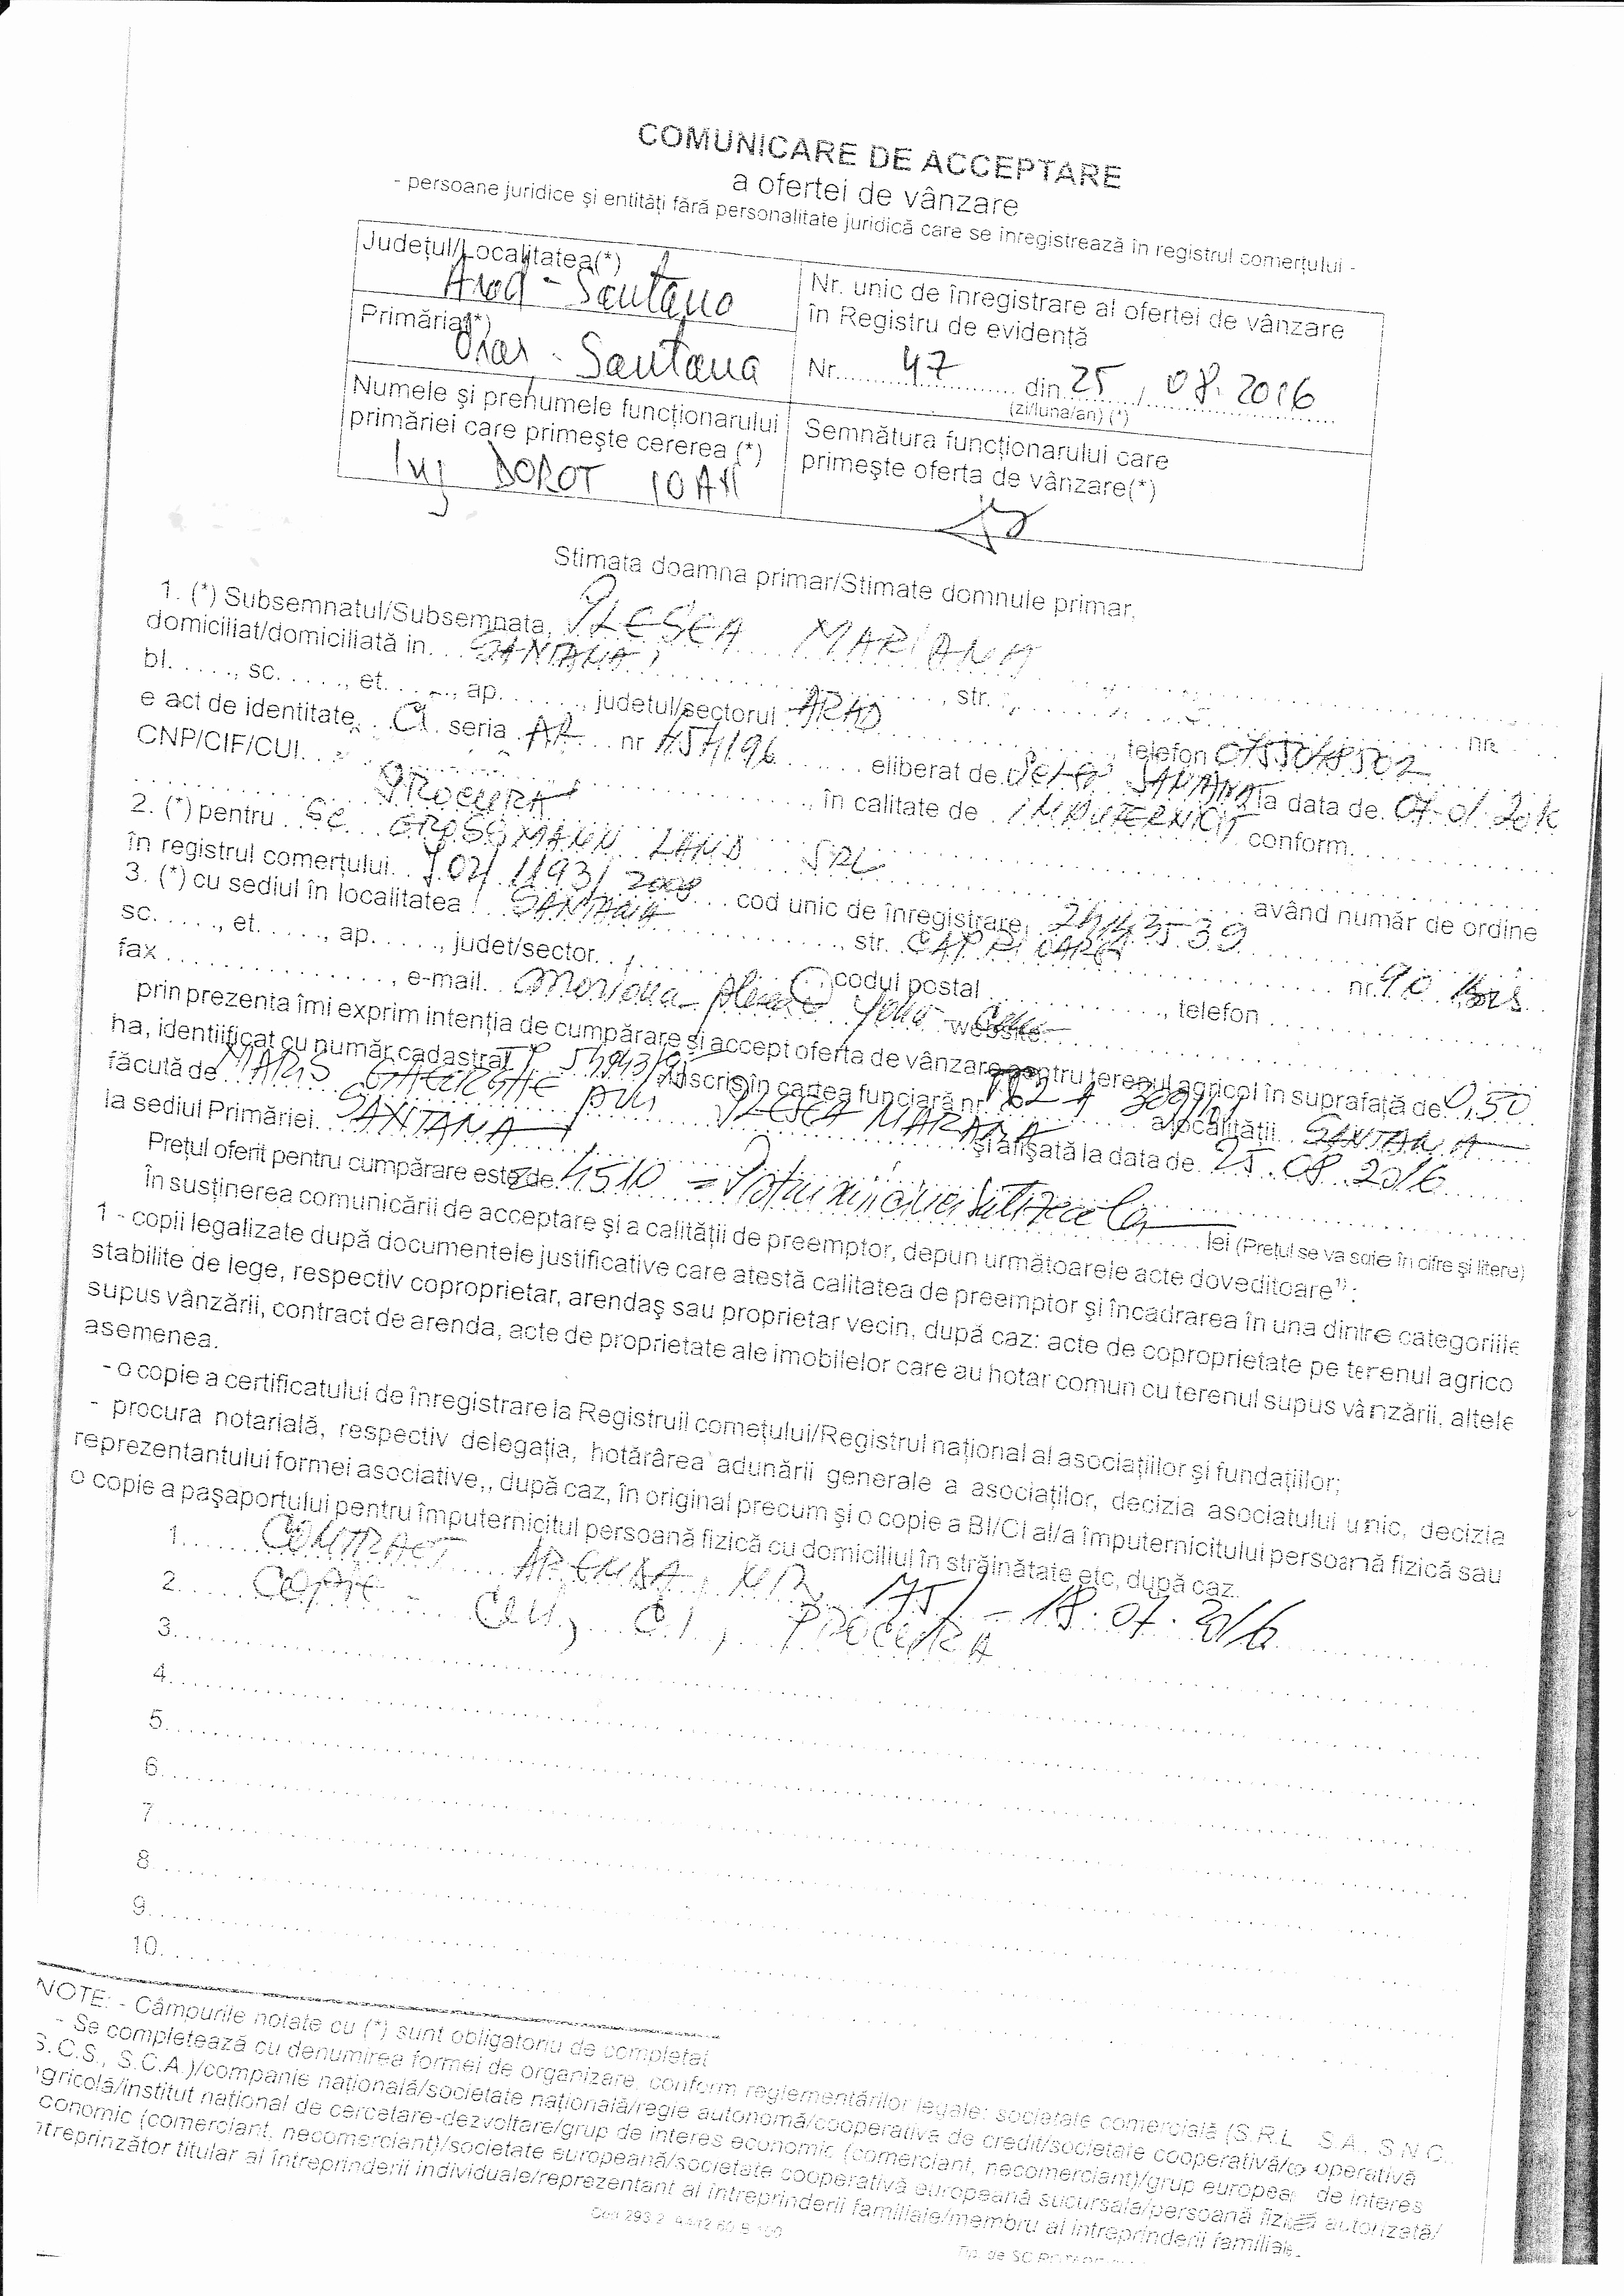 COMUNICARE DE ACCEPTARE
a ofertei de vânzare
- persoane juridice şi entităţi fără personalitate juridică care se înregistrează în registrul comerţului -
Judeţul/Localitatea(*)
Arad - Santana
Primăria(*)
Oras - Santana
Numele şi prenumele funcţionarului
primăriei care primeşte cererea (*)
Ing DOROT IOAN
Nr. unic de înregistrare al ofertei de vânzare
în Registru de evidenţă
Nr. 47 din 25 / 08. 2016
(zi/luna/an) (*)
Semnătura funcţionarului care
primeşte oferta de vânzare(*)
Stimata doamna primar/Stimate domnule primar,
1. (*) Subsemnatul/Subsemnata, PLESCA MARIANA
domiciliat/domiciliată in. SANTANA, str.
bl. . . . ., sc. . . . ., et. . . . ., ap. . . . . ., judetul/sectorul ARAD, telefon nr.
e act de identitate, CI seria AR nr eliberat de SANTANA la data de.
CNP/CIF/CUI. . . în calitate de IMPUTERNICIT conform.
PROCURA
2. (*) pentru SC GROSSMANN LAND SRL având număr de ordine
în registrul comerţului. J02/1193/2008 cod unic de înregistrare,
3. (*) cu sediul în localitatea SANTANA, str. nr. 90 Bis
sc. . . . ., et. . . . ., ap. . . . ., judet/sector. . , codul postal . . . , telefon
fax . . . , e-mail. website.
prin prezenta îmi exprim intenţia de cumpărare şi accept oferta de vânzare pentru terenul agricol în suprafaţă de 0,50
ha, identiificat cu număr cadastral înscris în cartea funciară nr. a localităţii SANTANA
făcută de MARIS GHEORGHE prin PLESCA MARIANA şi afişată la data de. 25.08.2016
la sediul Primăriei. SANTANA
Preţul oferit pentru cumpărare este de 4510 = lei (Preţul se va scrie în cifre şi litere)
În susţinerea comunicării de acceptare şi a calităţii de preemptor, depun următoarele acte doveditoare¹⁾:
1 - copii legalizate după documentele justificative care atestă calitatea de preemptor şi încadrarea în una dintre categoriile
stabilite de lege, respectiv coproprietar, arendaş sau proprietar vecin, după caz: acte de coproprietate pe terenul agrico
supus vânzării, contract de arenda, acte de proprietate ale imobilelor care au hotar comun cu terenul supus vânzării, altele
asemenea.
- o copie a certificatului de înregistrare la Registruil comeţului/Registrul naţional al asociaţiilor şi fundaţiilor;
- procura notarială, respectiv delegaţia, hotărârea adunării generale a asociaţilor, decizia asociatului unic, decizia
reprezentantului formei asociative,, după caz, în original precum şi o copie a BI/CI al/a împuternicitului persoană fizică sau
o copie a paşaportului pentru împuternicitul persoană fizică cu domiciliul în străinătate etc, după caz.
1. CONTRACT ARENDA, NR. 175/ - 18.07.2016
2. COPIE - CUI, C.I, PROCURA
3.
4.
5.
6.
7.
8.
9.
10.
NOTE: - Câmpurile notate cu (*) sunt obligatoriu de completat
- Se completează cu denumirea formei de organizare, conform reglementărilor legale: societate comercială (S.R.L S.A., S.N.C.,
S.C.S., S.C.A.)/companie naţională/societate naţională/regie autonomă/cooperativa de credit/societate cooperativă/co operativă
gricolă/institut naţional de cercetare-dezvoltare/grup de interes economic (comerciant, necomerciant)/grup europea de interes
conomic (comerciant, necomerciant)/societate europeană/societate cooperativă europeană sucursala/persoană fizică autorizată/
ntreprinzător titular al întreprinderii individuale/reprezentant al întreprinderii familiale/membru al întreprinderii familiale.